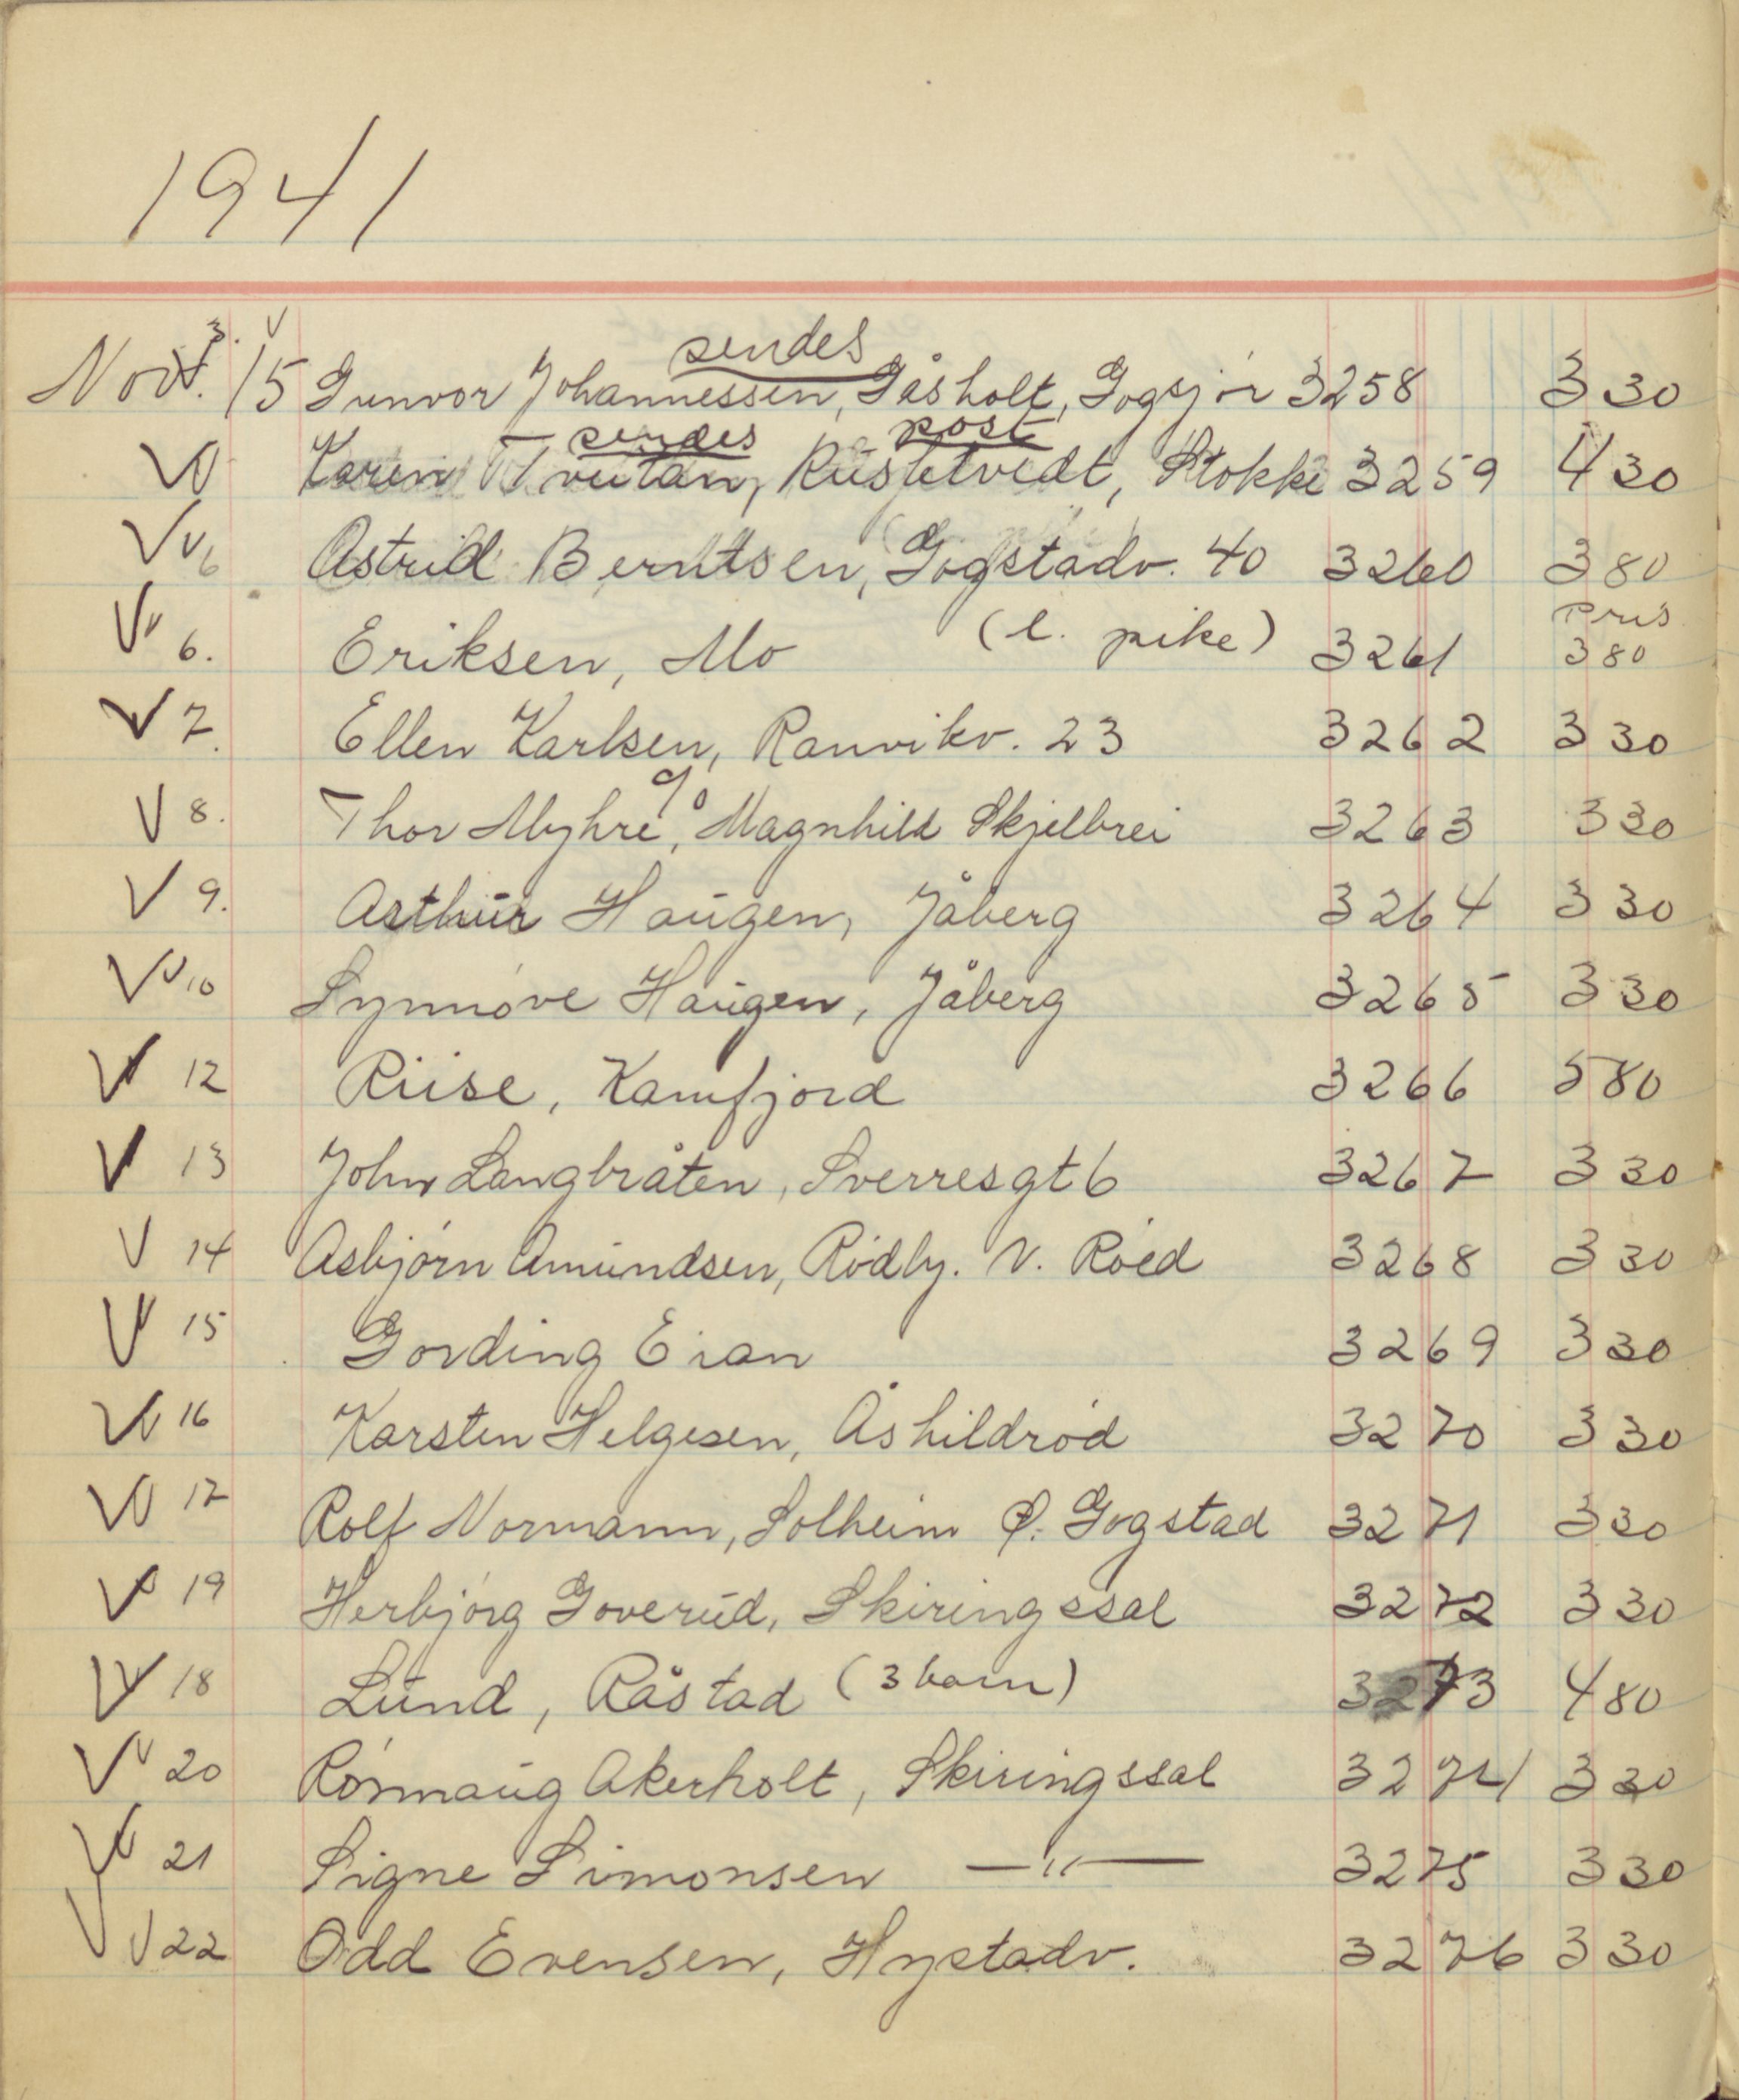 1941
Nov. 3. V 15 Gunvor Johannessen, Gåsholt, Gogsjør 3258 3 30
sendes
V Karen Tveitan, Rustetvedt, Stokke 3259 4 30
sendes post
V V 6 Astrid Berntsen, Gogstadv. 40 3260 3 80
V V 6. Eriksen, Mo (l. pike) 3261 Pris 3 80
V 7. Ellen Karlsen, Ranvikv. 23 3262 3 30
V 8. Thor Myhre, c/o Magnhild Skjelbrei 3263 3 30
V 9. Arthur Haugen, Jåberg 3264 3 30
V V 10 Synnøve Haugen, Jåberg 3265 3 30
V 12 Riise, Kamfjord 3266 5 80
V 13 John Langbråten, Sverresgt 6 3267 3 30
V 14 Asbjørn Amundsen, Rødby. V. Røed 3268 3 30
V 15 Gording Eian 3269 3 30
V V 16 Karsten Helgesen, Åshildrød 3270 3 30
V V 17 Rolf Normann, Solheim Ø. Gogstad 3271 3 30
V 19 Herbjørg Goverud, Skiringssal 3272 3 30
V V 18 Lund, Råstad (3 barn) 3273 4 80
V V 20 Rønnaug Akerholt, Skiringssal 3274 3 30
V V 21 Signe Simonsen —"— 3275 3 30
V V 22 Odd Evensen, Hystadv. 3276 3 30